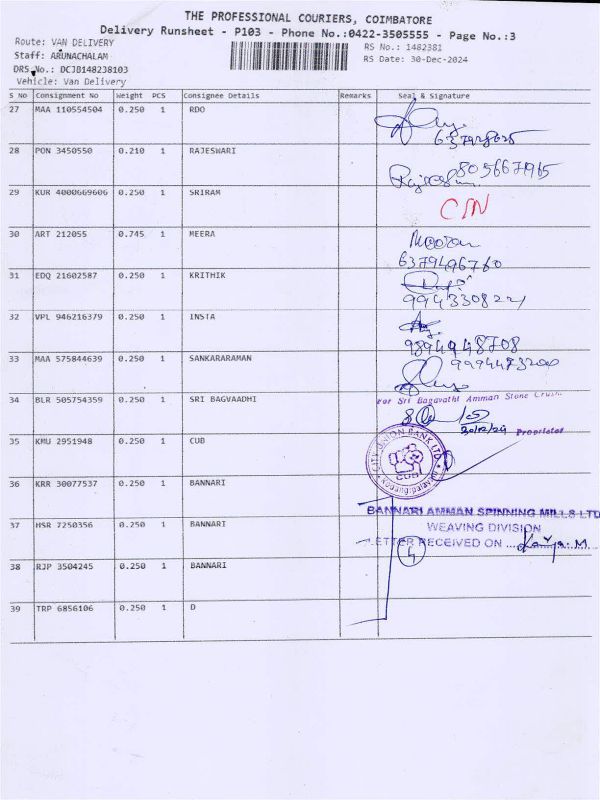 THE PROFESSIONAL COURIERS, COIMBATORE
Delivery Runsheet - P103 - Phone No.:0422-3505555 - Page No.:3
Route: VAN DELIVERY
RS No.: 1482381
Staff: ARUNACHALAM
RS Date: 30-Dec-2024
DRS No.: DCJB148238103
Vehicle: Van Delivery
S No Consignment No Weight PCS Consignee Details Remarks Seal & Signature
27 MAA 110554504 0.250 1 RDO
28 PON 3450550 0.210 1 RAJESWARI
8056671965
29 KUR 4000669606 0.250 1 SRIRAM
30 ART 212055 0.745 1 MEERA
6379496760
31 EDQ 21602587 0.250 1 KRITHIK
32 VPL 946216379 0.250 1 INSTA
9894948708
33 MAA 575844639 0.250 1 SANKARARAMAN
34 BLR 505754359 0.250 1 SRI BAGVAADHI
For Sri Bagavathi Amman Stone
30/12/24 Proprietor
35 KMU 2951948 0.250 1 CUB
CITY UNION BANK LTD
CUB
36 KRR 30077537 0.250 1 BANNARI
BANNARI AMMAN SPINNING MILLS LTD
37 HSR 7250356 0.250 1 BANNARI
WEAVING DIVISION
LETTER RECEIVED ON
4
38 RJP 3504245 0.250 1 BANNARI
39 TRP 6856106 0.250 1 D